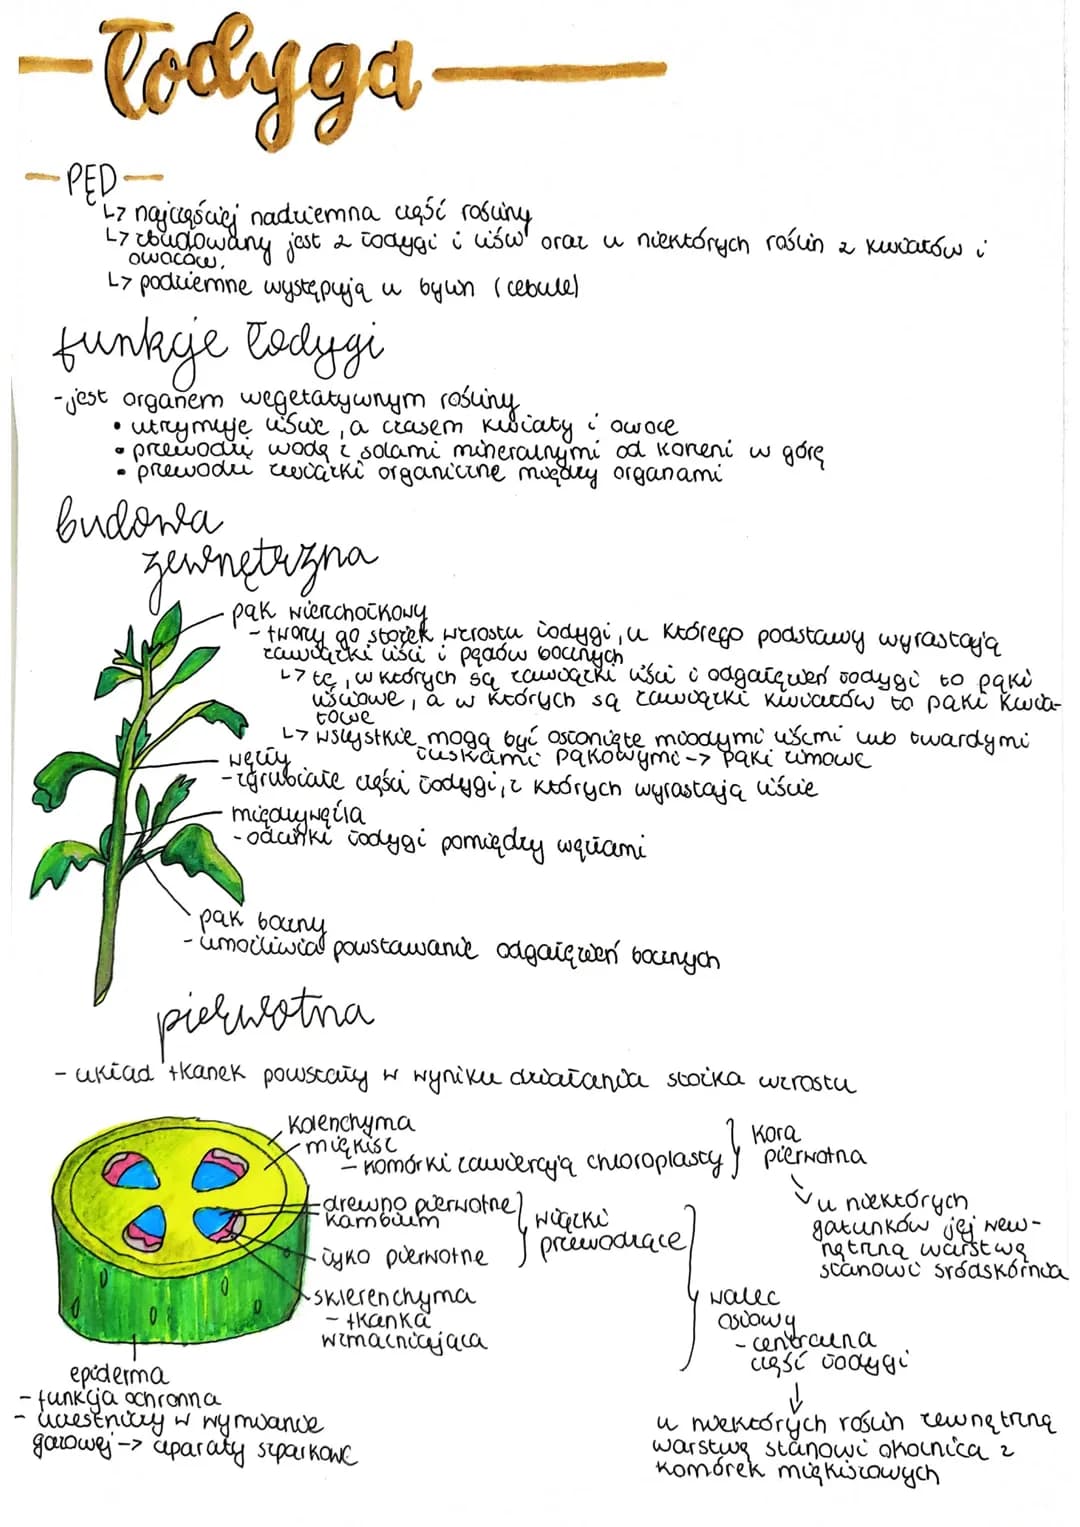 łodyga
PĘD
↳ najczęściej nadziemna część rośliny
↳ zbudowany jest z łodygi i liśw oraz u niektórych roślin z kwiatów i
owoców.
↳ podziemne występują u bylin (cebule)
funkcje łodygi
- jest organem wegetatywnym rośliny
• utrzymuje liście, a czasem kwiaty i owoce
• przewodzi wodę z solami mineralnymi od korzeni w górę
• przewodzi związki organiczne między organami
budowa
zewnętrzna
pąk wierzchołkowy
- tworzy go stożek wzrostu łodygi, u którego podstawy wyrastają
zawiązki liści i pędów bocznych
↳ te, w których są zawiązki liści i odgałęzień łodygi to pąki
liściowe, a w których są zawiązki kwiatów to pąki kwia-
towe
↳ wszystkie mogą być osłonięte młodymi liśćmi lub twardymi
łuskami pąkowymi -> pąki zimowe
węzły
- zgrubiałe części łodygi, z których wyrastają liście
międzywęźla
- odcinki łodygi pomiędzy węzłami
pąk boczny
- umożliwia powstawanie odgałęzień bocznych
pierwotna
- układ tkanek powstały w wyniku działania stożka wzrostu
kolenchyma
miękisz
- komórki zawierają chloroplasty
kora
pierwotna
u niektórych
gatunków jej wew-
nętrzną warstwę
stanowi śródskórnia
drewno pierwotne
kambium
łyko pierwotne
wiązki
przewodzące
sklerenchyma
- tkanka
wzmacniająca
walec
osiowy
- centralna
część łodygi
u niektórych roślin zewnętrzną
warstwę stanowi okolnica z
komórek miękiszowych
epiderma
- funkcja ochronna
- uczestniczy w wymianie
gazowej -> aparaty szparkowe